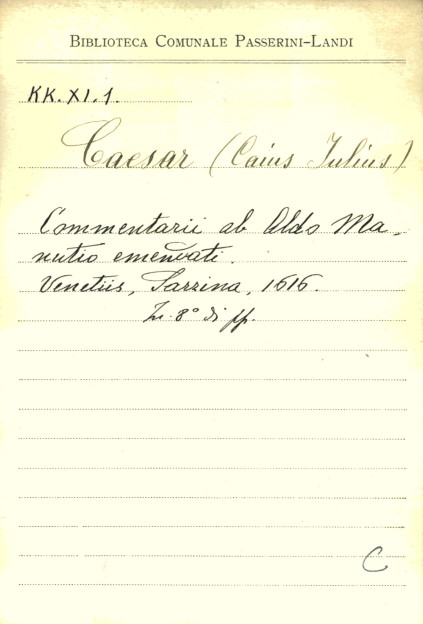 BIBLIOTECA COMUNALE PASSERINI-LANDI
KK. XI. 1.
Caesar (Caius Iulius)
Commentarii ab Aldo Ma-
nutio emendati.
Venetiis, Sarzina, 1616.
In 8° di pp.
C